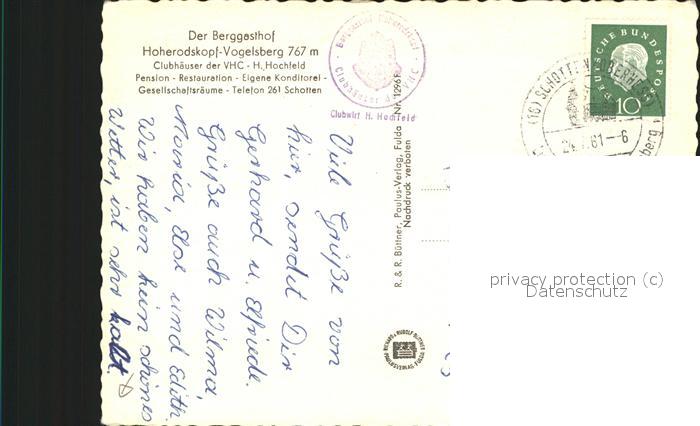 Der Berggasthof
Hoherodskopf-Vogelsberg 767 m
Clubhäuser der VHC - H. Hochfeld
Pension - Restauration - Eigene Konditorei -
Gesellschaftsräume - Telefon 261 Schotten
Clubwirt H. Hochfeld
DEUTSCHE BUNDESPOST
10
(16) SCHOTTEN
61-6
Viele Grüße von
hier, sendet Dir
Gerhard u. Elfriede.
Grüße auch Wilma,
Maria, Else und Edith
Wir haben kein schönes
Wetter, ist sehr kalt.
Nr. 1296
R. & R. Büttner, Paulus-Verlag, Fulda
Nachdruck verboten
privacy protection (c)
Datenschutz